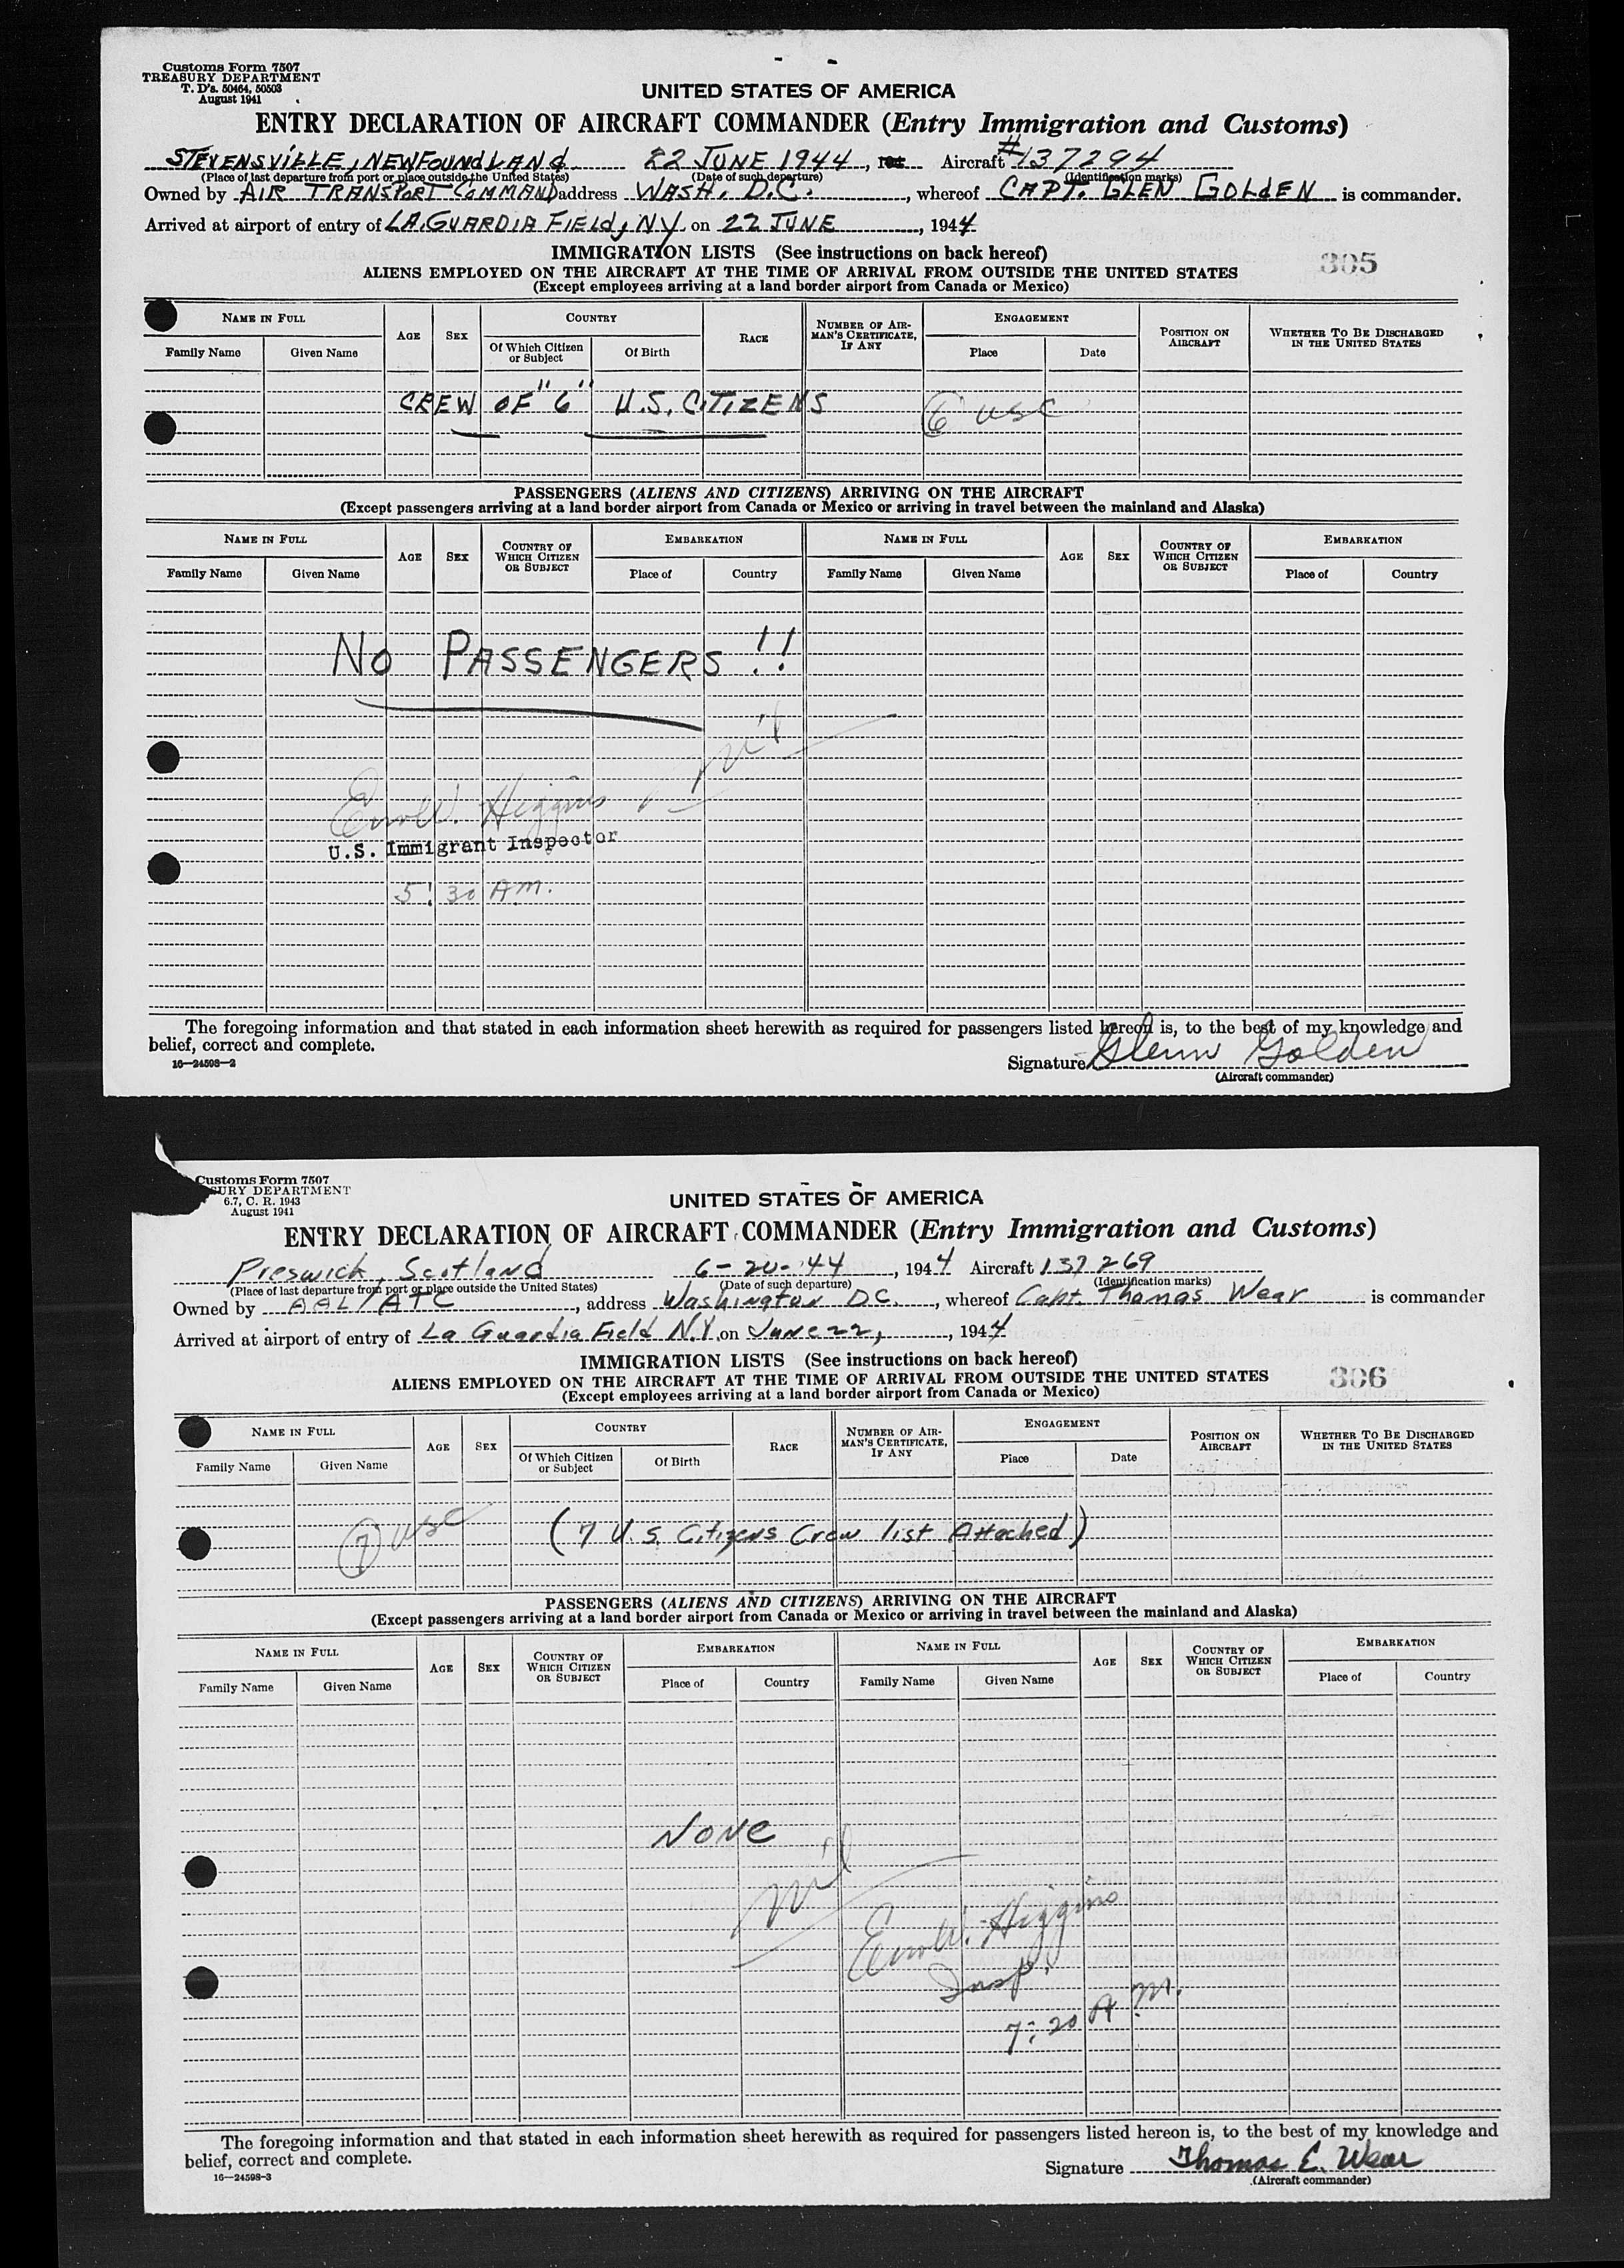 Customs Form 7507
TREASURY DEPARTMENT
T. D's. 50464, 50503
August 1941
UNITED STATES OF AMERICA
ENTRY DECLARATION OF AIRCRAFT COMMANDER (Entry Immigration and Customs)
STEVENSVILLE, NEWFOUNDLAND 22 JUNE 1944, 194 Aircraft #137294
(Place of last departure from port or place outside the United States) (Date of such departure) (Identification marks)
Owned by AIR TRANSPORT COMMAND address WASH. D.C. , whereof CAPT. GLEN GOLDEN is commander.
Arrived at airport of entry of LA.GUARDIA FIELD, NY. on 22 JUNE , 1944
IMMIGRATION LISTS (See instructions on back hereof)
305
ALIENS EMPLOYED ON THE AIRCRAFT AT THE TIME OF ARRIVAL FROM OUTSIDE THE UNITED STATES
(Except employees arriving at a land border airport from Canada or Mexico)
NAME IN FULL AGE SEX COUNTRY RACE NUMBER OF AIRMAN'S CERTIFICATE, IF ANY ENGAGEMENT POSITION ON AIRCRAFT WHETHER TO BE DISCHARGED IN THE UNITED STATES
Family Name Given Name Of Which Citizen or Subject Of Birth Place Date
CREW OF "6" U.S. CITIZENS 6 USC
PASSENGERS (ALIENS AND CITIZENS) ARRIVING ON THE AIRCRAFT
(Except passengers arriving at a land border airport from Canada or Mexico or arriving in travel between the mainland and Alaska)
NAME IN FULL AGE SEX COUNTRY OF WHICH CITIZEN OR SUBJECT EMBARKATION NAME IN FULL AGE SEX COUNTRY OF WHICH CITIZEN OR SUBJECT EMBARKATION
Family Name Given Name Place of Country Family Name Given Name Place of Country
NO PASSENGERS!!
Higgins
U.S. Immigrant Inspector
5:30 AM.
The foregoing information and that stated in each information sheet herewith as required for passengers listed hereon is, to the best of my knowledge and
belief, correct and complete.
16—24598—2
Signature Glenn Golden
(Aircraft commander)
Customs Form 7507
SURY DEPARTMENT
6.7, C. R. 1943
August 1941
UNITED STATES OF AMERICA
ENTRY DECLARATION OF AIRCRAFT COMMANDER (Entry Immigration and Customs)
Preswick, Scotland 6-20-44 , 1944 Aircraft 137269
(Place of last departure from port or place outside the United States) (Date of such departure) (Identification marks)
Owned by AAL/ATC , address Washington D.C. , whereof Capt. Thomas Wear is commander
Arrived at airport of entry of La Guardia Field N.Y. on June 22, , 1944
IMMIGRATION LISTS (See instructions on back hereof)
306
ALIENS EMPLOYED ON THE AIRCRAFT AT THE TIME OF ARRIVAL FROM OUTSIDE THE UNITED STATES
(Except employees arriving at a land border airport from Canada or Mexico)
NAME IN FULL AGE SEX COUNTRY RACE NUMBER OF AIRMAN'S CERTIFICATE, IF ANY ENGAGEMENT POSITION ON AIRCRAFT WHETHER TO BE DISCHARGED IN THE UNITED STATES
Family Name Given Name Of Which Citizen or Subject Of Birth Place Date
7 USC (7 U.S. Citizens Crew list Attached)
PASSENGERS (ALIENS AND CITIZENS) ARRIVING ON THE AIRCRAFT
(Except passengers arriving at a land border airport from Canada or Mexico or arriving in travel between the mainland and Alaska)
NAME IN FULL AGE SEX COUNTRY OF WHICH CITIZEN OR SUBJECT EMBARKATION NAME IN FULL AGE SEX COUNTRY OF WHICH CITIZEN OR SUBJECT EMBARKATION
Family Name Given Name Place of Country Family Name Given Name Place of Country
NONE
Higgins
Insp.
7:20 A.M.
The foregoing information and that stated in each information sheet herewith as required for passengers listed hereon is, to the best of my knowledge and
belief, correct and complete.
16—24598-3
Signature Thomas E. Wear
(Aircraft commander)